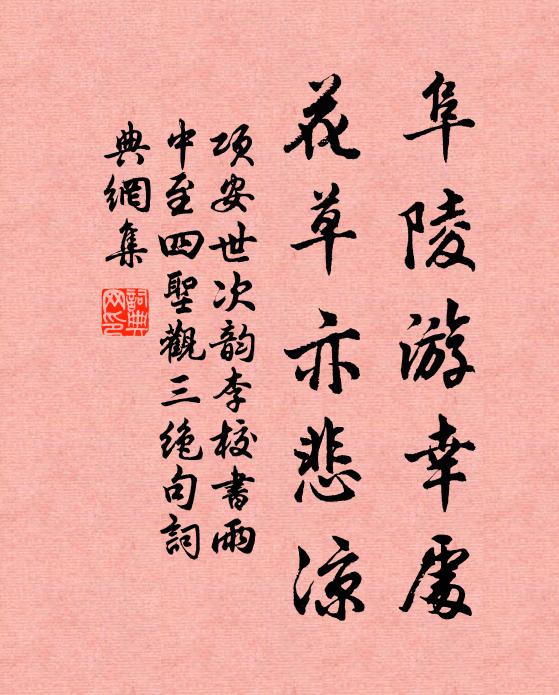 阜陵游幸處
花草亦悲涼
項安世次韵李校書雨
中至四聖觀三絶句詞
典網集
詞典網印